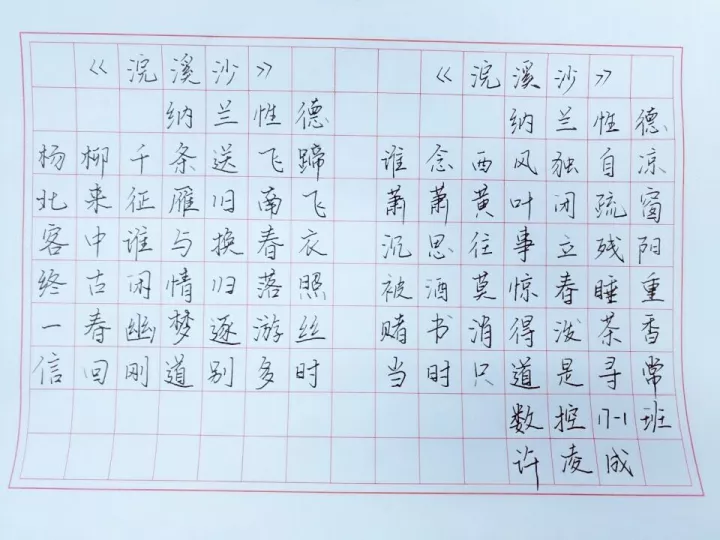 《浣溪沙》
纳兰性德
杨柳千条送飞蹄
北来征雁旧南飞
客中谁与换春衣
终古闲情归落照
一春幽梦逐游丝
信回刚道别多时
《浣溪沙》
纳兰性德
谁念西风独自凉
萧萧黄叶闭疏窗
沉思往事立残阳
被酒莫惊春睡重
赌书消得泼茶香
当时只道是寻常
数控17-1班
许凌成